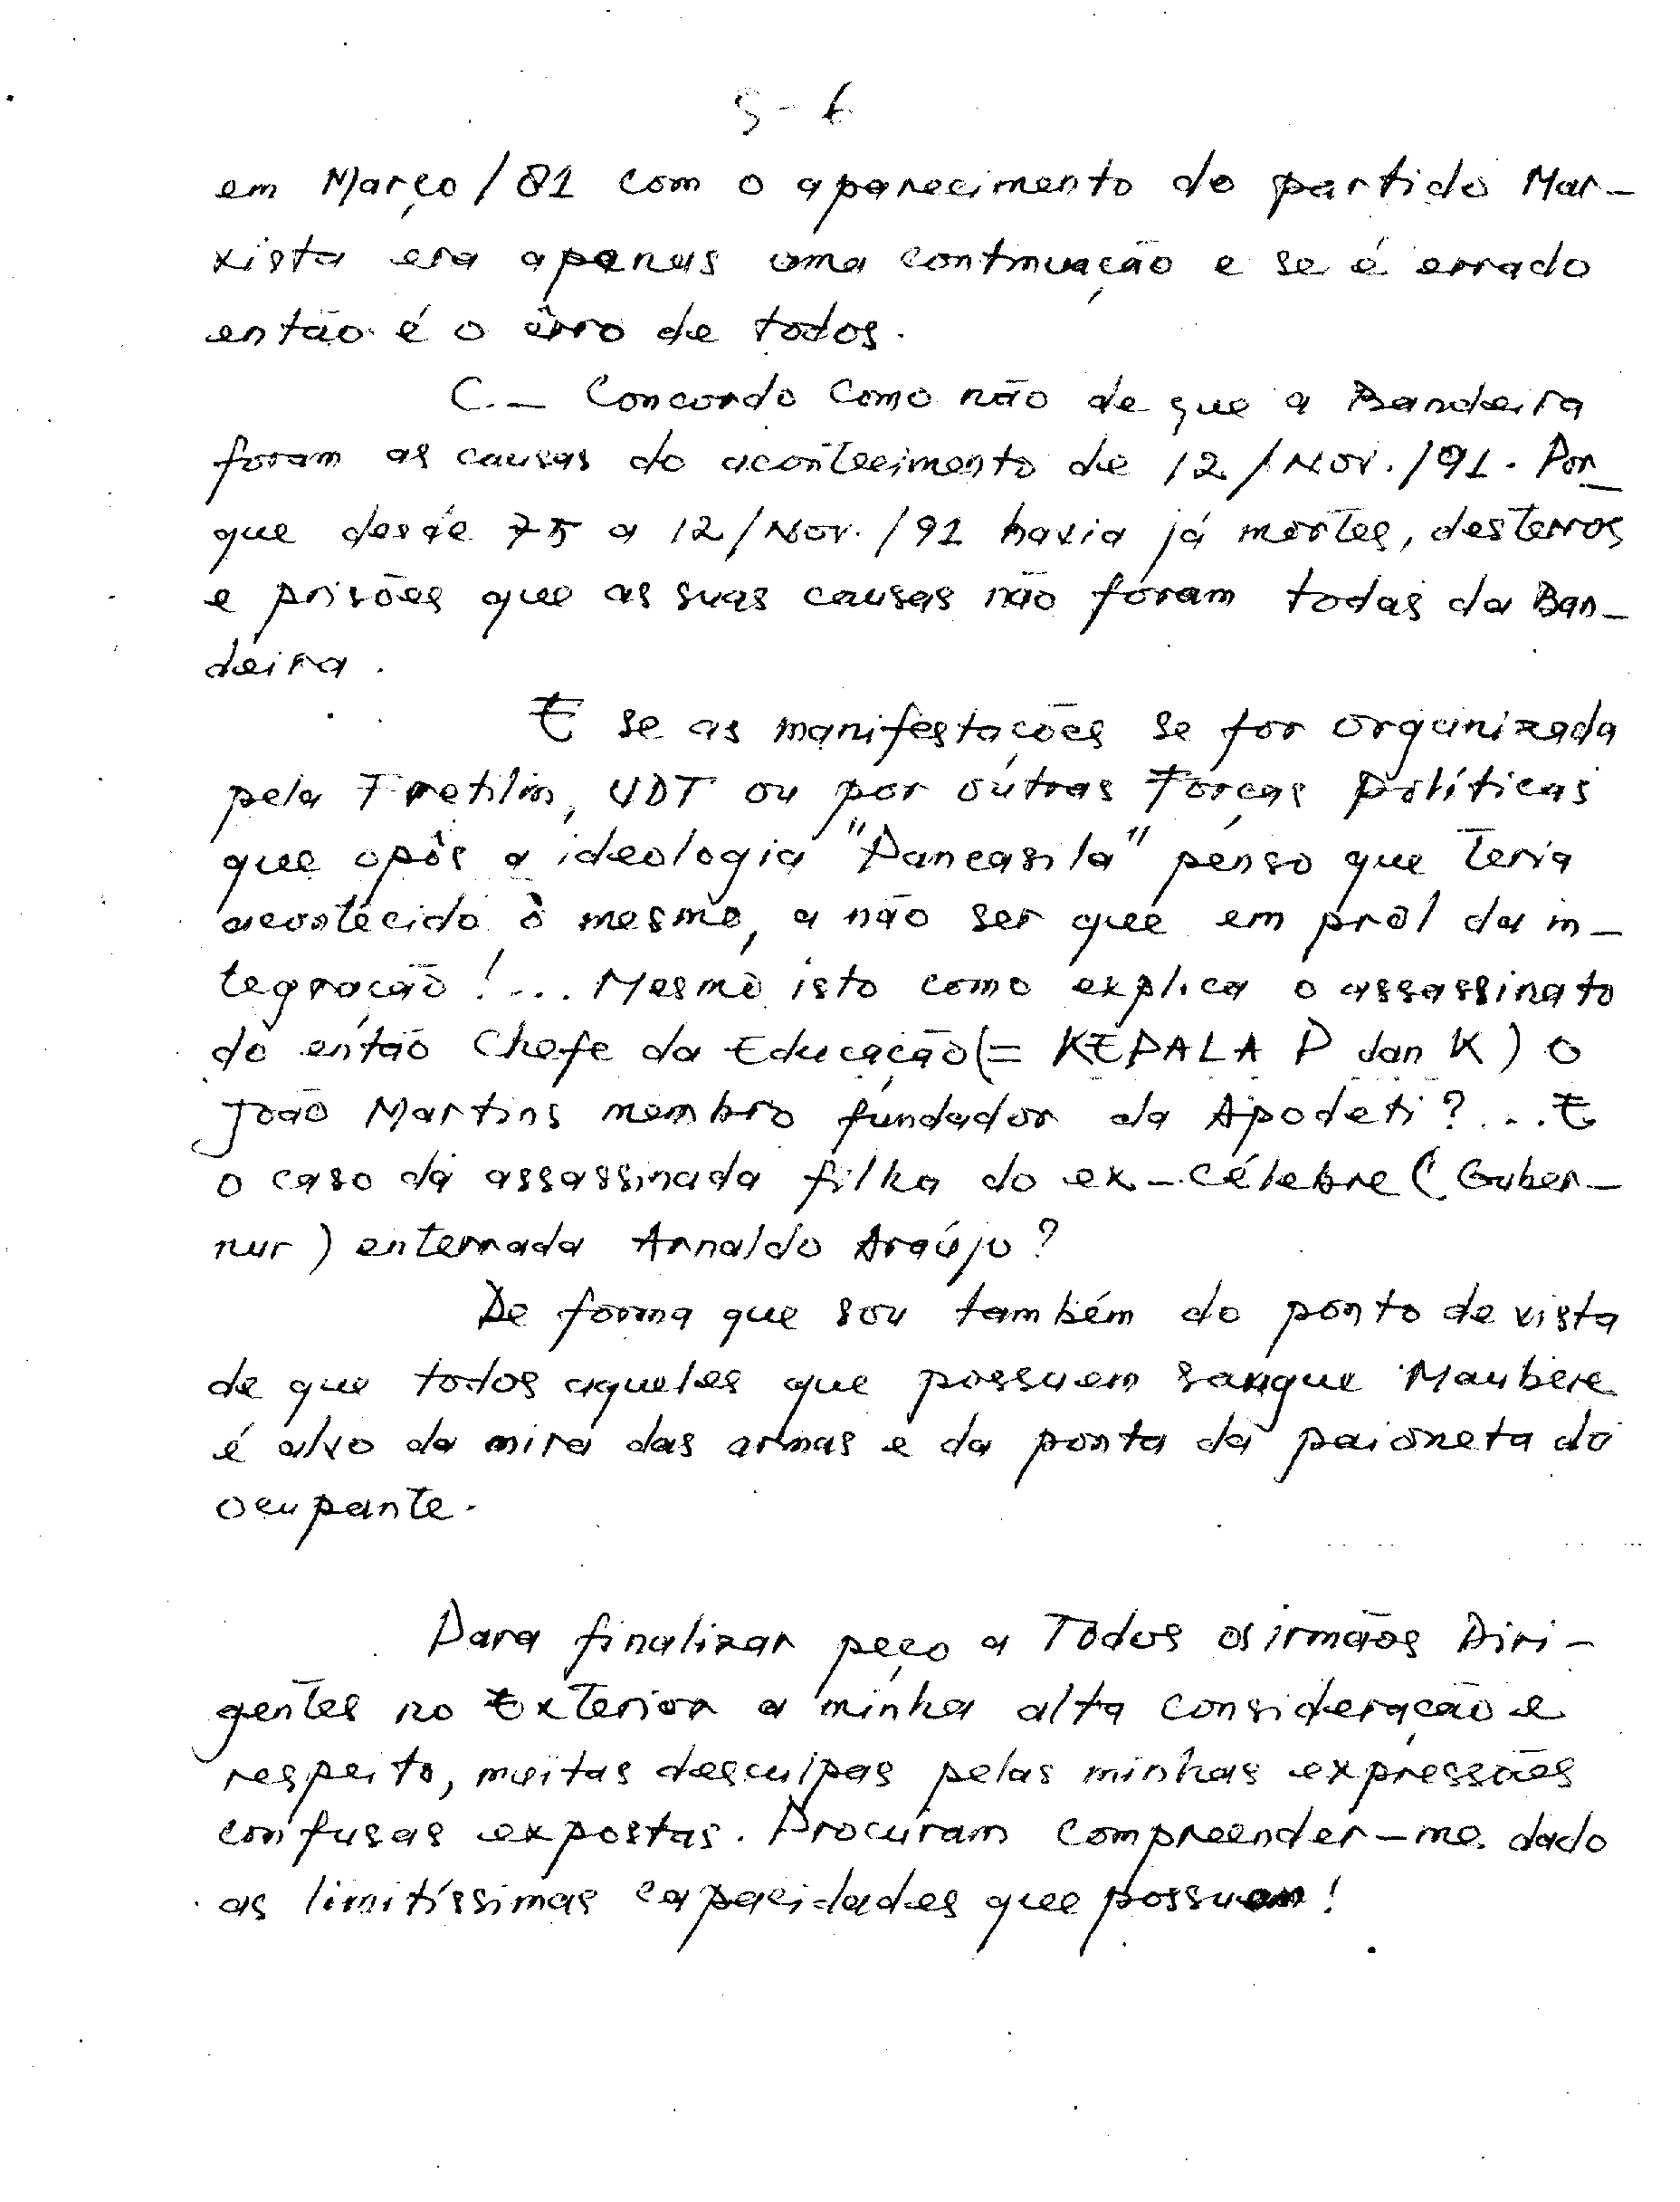 5 - 6
em Março / 81 com o aparecimento do partido Mar-
xista era apenas uma continuação e se é errado
então é o êrro de todos.
C. - Concordo como não de que a Bandeira
foram as causas do acontecimento de 12 / Nov. / 91. Por
que desde 75 a 12 / Nov. / 91 havia já mortes, desterros
e prisões que as suas causas não foram todas da Ban-
deira.
E se as manifestações se for organizada
pela Fretilin, UDT ou por outras Forças Políticas
que opôs a ideologia "Pancasila" penso que teria
acontecido o mesmo, a não ser que em prol da in-
tegração !... Mesmo isto como explica o assassinato
do então Chefe da Educação (= KEPALA P dan K) o
João Martins membro fundador da Apodeti ?... E
o caso da assassinada filha do ex-célebre ( Guber-
nur ) enterrada Arnaldo Araújo ?
De forma que sou também do ponto de vista
de que todos aqueles que possuem sangue Maubere
é alvo da mira das armas e da ponta da paioneta do
ocupante.
Para finalizar peço a Todos os irmãos Diri-
gentes no Exterior a minha alta consideração e
respeito, muitas desculpas pelas minhas expressões
confusas expostas. Procuram compreender-me dado
as limitíssimas capacidades que possuem !